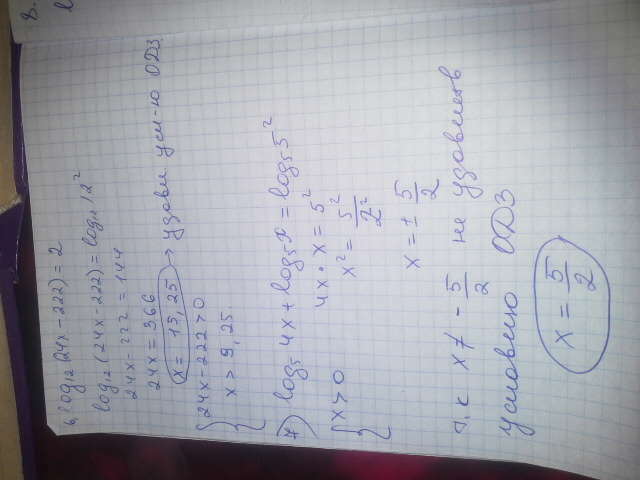 6) log₁₂(24x-222) = 2
log₁₂(24x-222) = log₁₂12²
24x-222 = 144
24x = 366
x = 15,25 → удовл усл-ю ОДЗ
{24x-222>0
x > 9,25.
7) log₅4x + log₅x = log₅5²
{x>0
4x·x = 5²
x² = 5²/2²
x = ± 5/2
т.к x≠ -5/2 не удовлетв
условию ОДЗ
x = 5/2